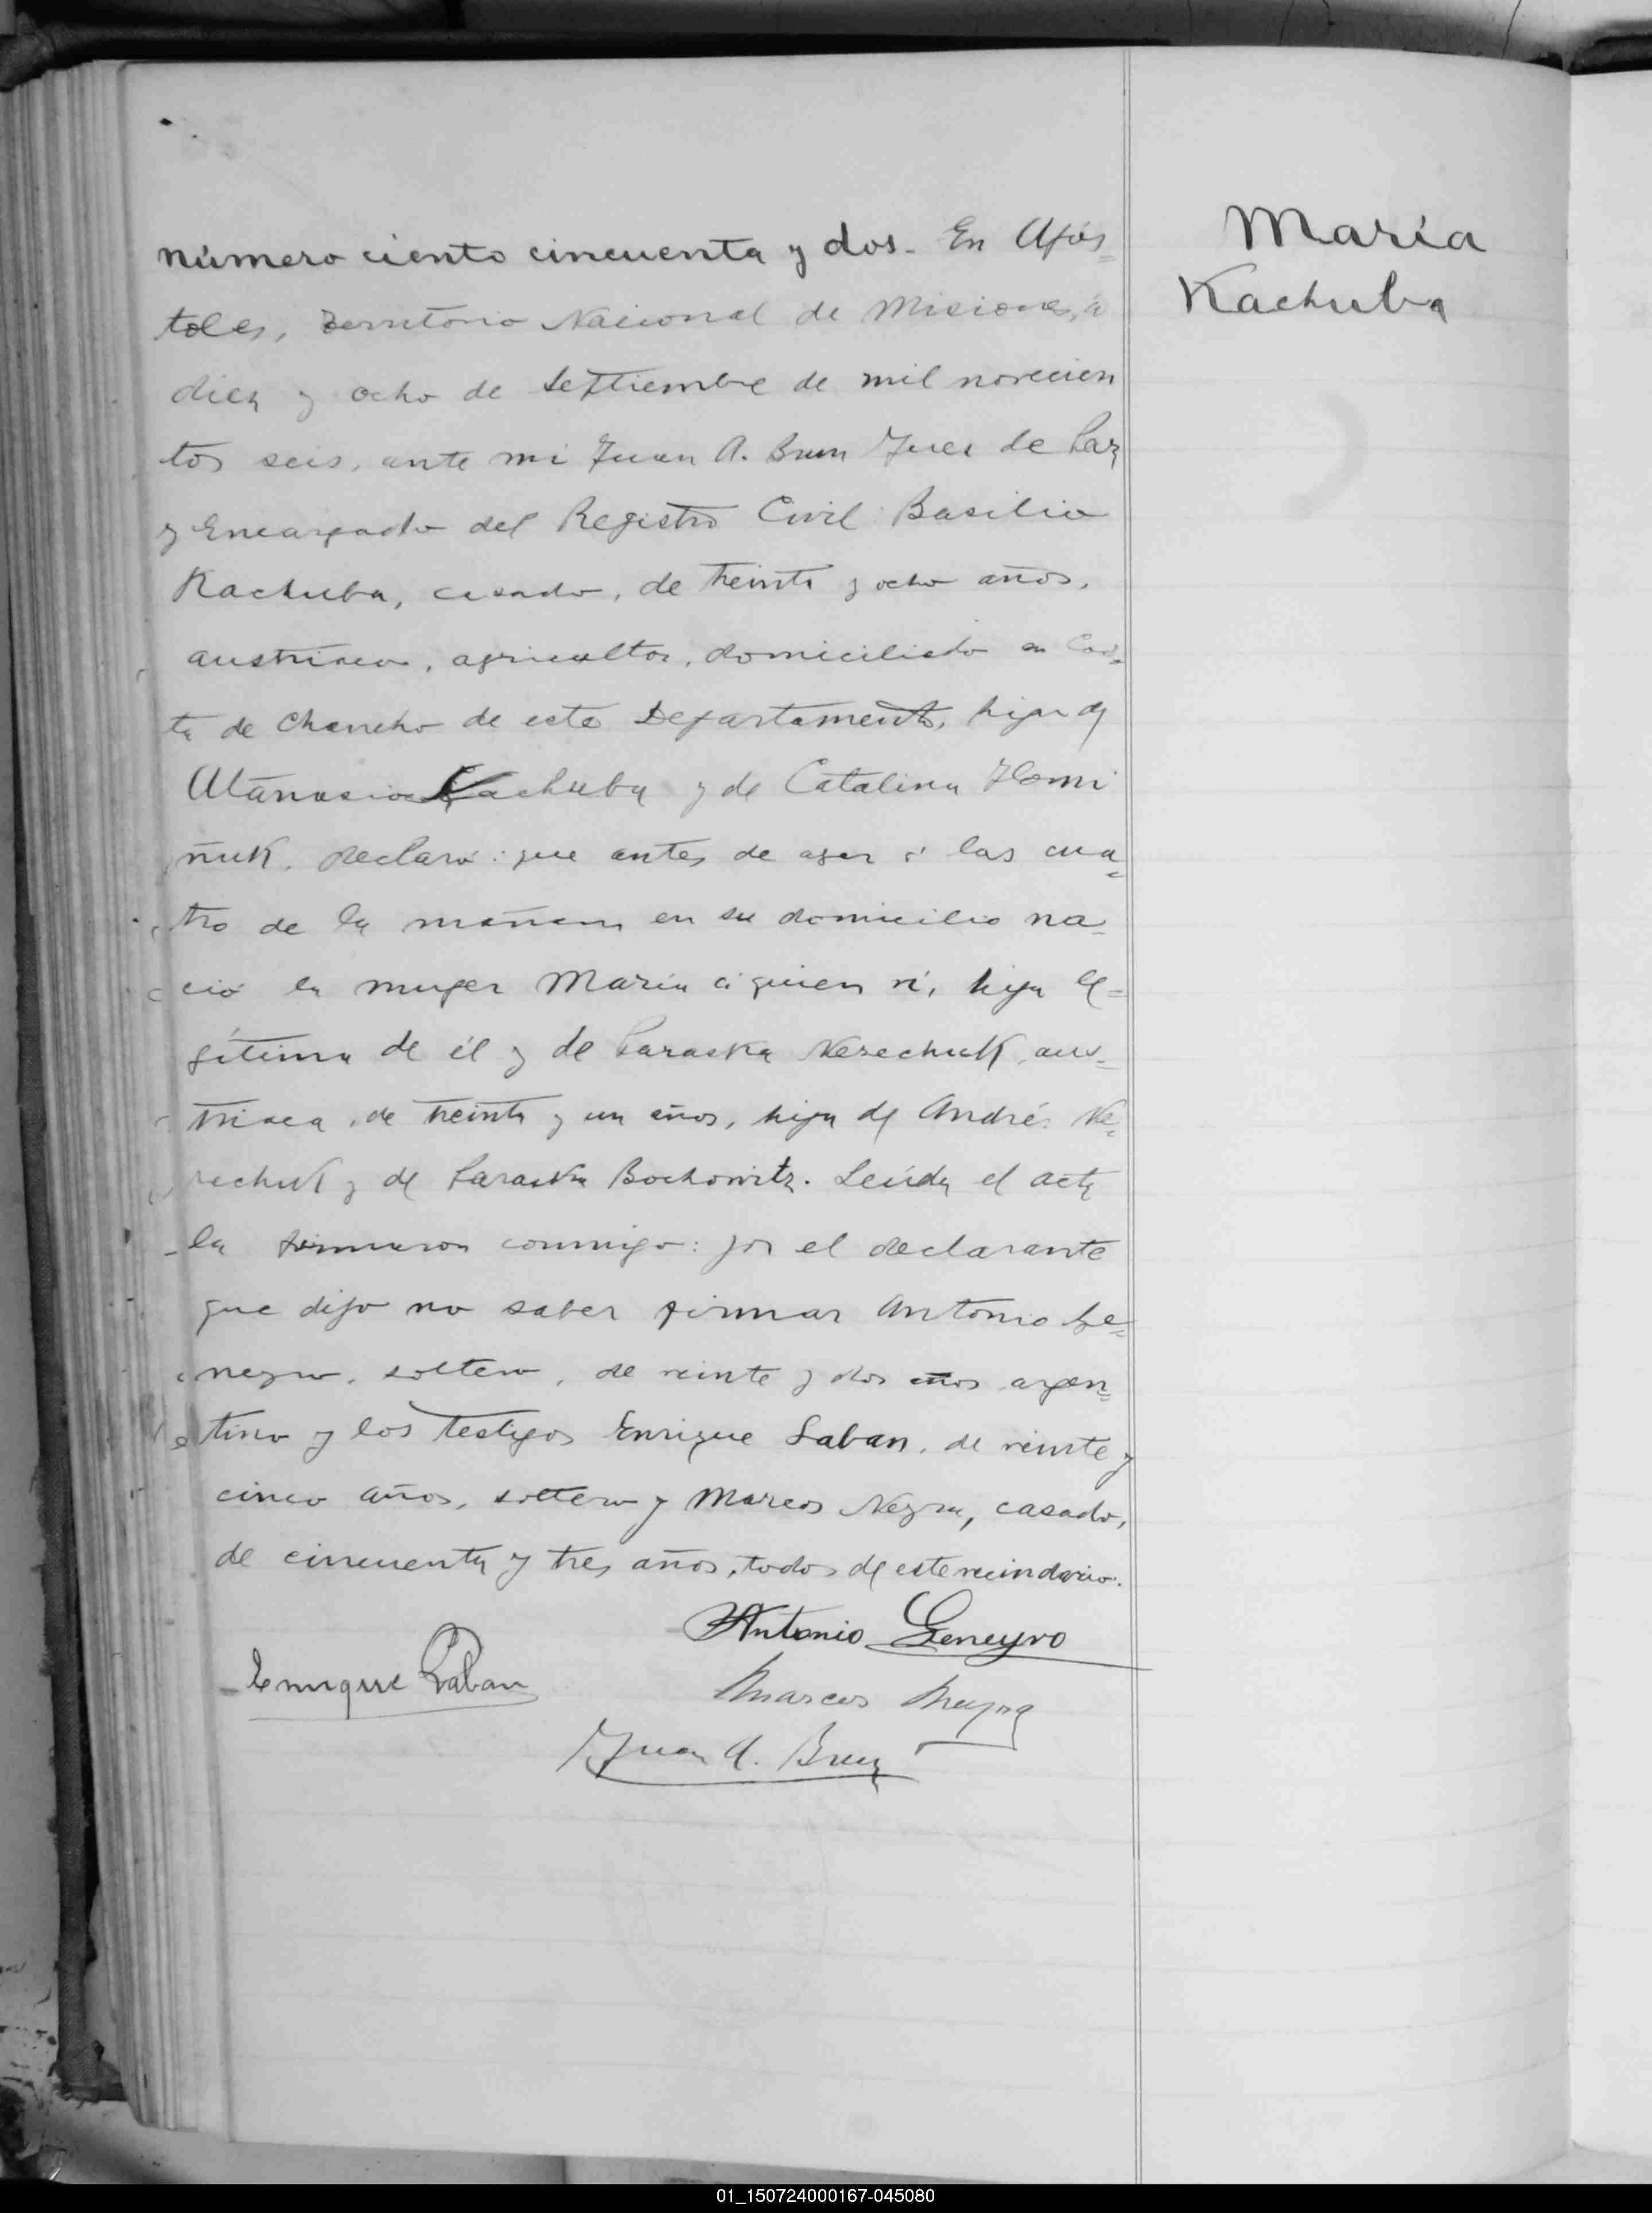 María
Kachuba
número ciento cincuenta y dos. En Após=
toles, Territorio Nacional de Misiones, á
diez y ocho de Septiembre de mil novecien
tos seis, ante mi Juan A. Brun Juez de Paz
y Encargado del Registro Civil Basilio
Kachuba, casado, de treinta y ocho años,
austriaco, agricultor, domiciliado en
ta de Chancho de este Departamento, hijo de
Atanasio Kachuba y de Catalina Homi
ñuk, declaró: que antes de ayer á las cua=
tro de la mañana en su domicilio na=
ció la mujer María á quien ví, hija le=
gítima de él y de Paraska Nerechuk, aus=
triaca, de treinta y un años, hija de Andrés Ne=
rechuk y de Paraska Bochowitz. Leída el acta
la firmaron conmigo: por el declarante
que dijo no saber firmar Antonio Ge=
neyro, soltero, de veinte y dos años argen=
tino y los testigos Enrique Laban, de veinte y
cinco años, soltero y Marcos Neyra, casado,
de cincuenta y tres años, todos de este vecindario.
Antonio Geneyro
Enrique Laban
Marcos Neyra
Juan A. Brun
01_150724000167-045080